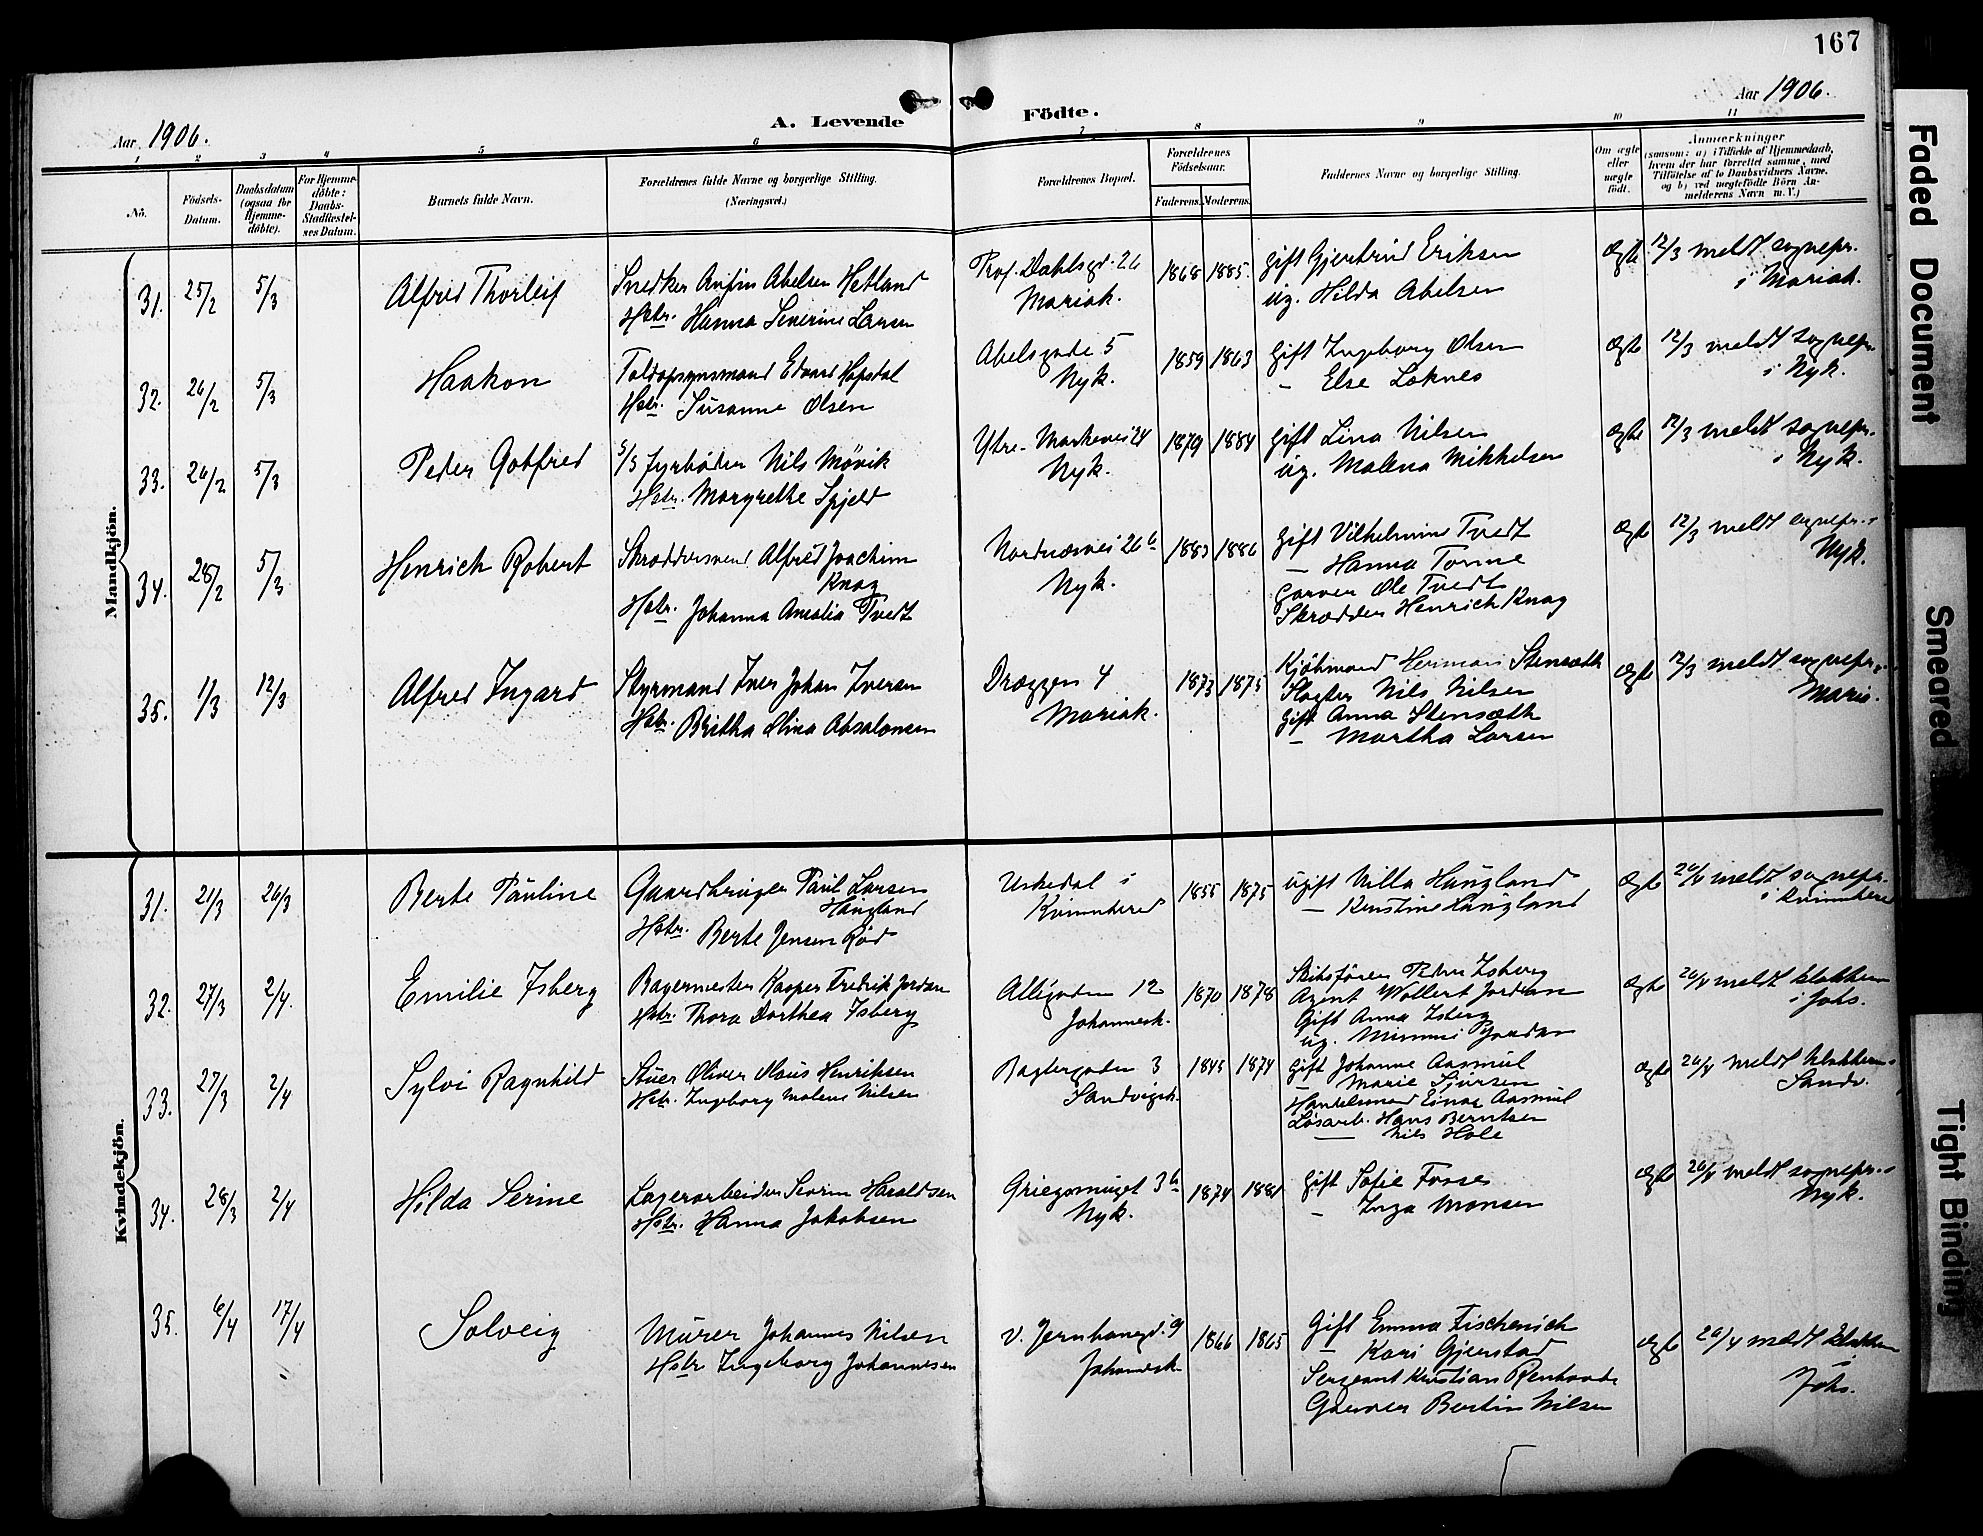 167
Aar 1906.
A. Levende Födte.
Aar 1906.
1 2 3 4 5 6 7 8 9 10 11
No.
Födsels-Datum.
Daabsdatum (ogsaa for Hjemme-döbte).
For Hjemme-döbte: Daabs-Stadfæstel-ses Datum.
Barnets fulde Navn.
Forældrenes fulde Navne og borgerlige Stilling.
(Næringsvei.)
Forældrenes Bopæl.
Forældrenes Födselsaar.
Faderens. Moderens.
Faddernes Navne og borgerlige Stilling.
Om ægte eller uægte født.
Anmærkninger
(saasom: a) i Tilfælde af Hjemmedaab, hvem der har forrettet samme, med Tilföielse af to Daabsvidners Navne, og b) ved uægtefödte Börn Anmelderens Navn m. V.)
Mandkjön.
31. 25/2 5/3 Alfred Thorleif
Snedker Anfin Abelsen Hetland
Hstr. Hanna Severine Larsen
Prof. Dahlsgd. 26
Mariak.
1868 1885.
gift Gjertrud Eriksen
ug. Hilda Abelsen
Ægte 12/3 meldt sognepr.
i Mariak.
32. 26/2 5/3 Haakon
Toldopsynsmand Edvard Hopstal
Hstr. Susanne Olsen
Abelsgade 5
Nyk.
1859 1863
Gift Ingeborg Olsen
– Else Loknes
Ægte 12/3 meldt sognepr.
i Nyk.
33. 26/2 5/3 Peder Gotfred
S/S fyrböder Nils Mövik
Hstr. Margrethe Spjeld
Ytre-Markevei 24
Nyk.
1879 1884
Gift Lina Nilsen
ug. Malena Mikkelsen
Ægte 12/3 meldt sognepr.
i Nyk.
34. 28/2 5/3 Henrich Robert
Skræddersvend Alfred Joachim
Knag
Hstr. Johanna Amalia Tvedt
Nordnæsvei 26 b
Nyk.
1883 1886
Gift Vilhelmine Tvedt
– Hanna
Garver Ole Tvedt
Skrædder Henrich Knag
Ægte 12/3 meldt sognepr. i
Nyk.
35. 1/3 12/3 Alfred Ingard
Styrmand Iver Johan Iversen
Hstr. Britha Olina Absalonsen
Dræggen 4
Mariak.
1873 1875
Kjöbmand Herman Stensæth
Slagter Nils Nilsen
Gift Anna Stensæth
– Martha Larsen
Ægte 12/3 meldt sognepr. i
Maria.
Kvindekjön.
31. 21/3 26/3 Berte Pauline
Gaardbruger Paul Larsen
Haugland
Hstr. Berte Jensen Röd
Uskedal i
Kvinnhered
1855 1875
ugift Villa Haugland
– Kristine Haugland
Ægte 26/4 meldt sognepr.
i Kvinnhered
32. 27/3 2/4. Emilie Isberg
Bagermester Kasper Fredrik Jordan
Hstr. Thora Dorthea Isberg
Allégaden 12
Johannesk.
1870 1878
Skibsförer Peder Isberg
Agent Wollert Jordan
Gift Anna Isberg
ug. Mimmi Jordan
Ægte 26/4 meldt klokkeren
i Johs.
33. 27/3 2/4 Sylvi Ragnhild
Stuer Oliver Olaus Henriksen
Hstr. Ingeborg Malene Nilsen
Baglergaden 3
Sandvigsk.
1845 1874
Gift Johanne Aasmul
– Marie Sjursen
Handelsmand Einar Aasmul
Løsarb. Hans Berntsen
— Nils Hole
Ægte 26/4 meldt klokkeren i
Sandv.
34. 28/3 2/4 Hilda Serine
Lagerarbeider Severin Haraldsen
Hstr. Hanna Jakobsen
Griegsmuget 3 b
Nyk.
1874 1881
Gift Sofie Fosse
– Inga Monsen
Ægte 26/4 meldt sognepr. i
Nyk.
35. 6/4 17/4 Solveig
Murer Johannes Nilsen
Hstr. Ingeborg Johannesen
V. Jernbanegd. 9
Johannesk
1866 1865
Gift Emma Fischenich
– Kari Gjerstad
Sergeant Kristian
Garver Bertin Nilsen
Ægte 26/4 meldt klokkeren
i
Johs.
Faded Document
Smeared
Tight Binding